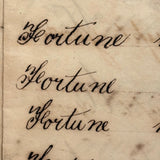 Fortune
Fortune
Fortune